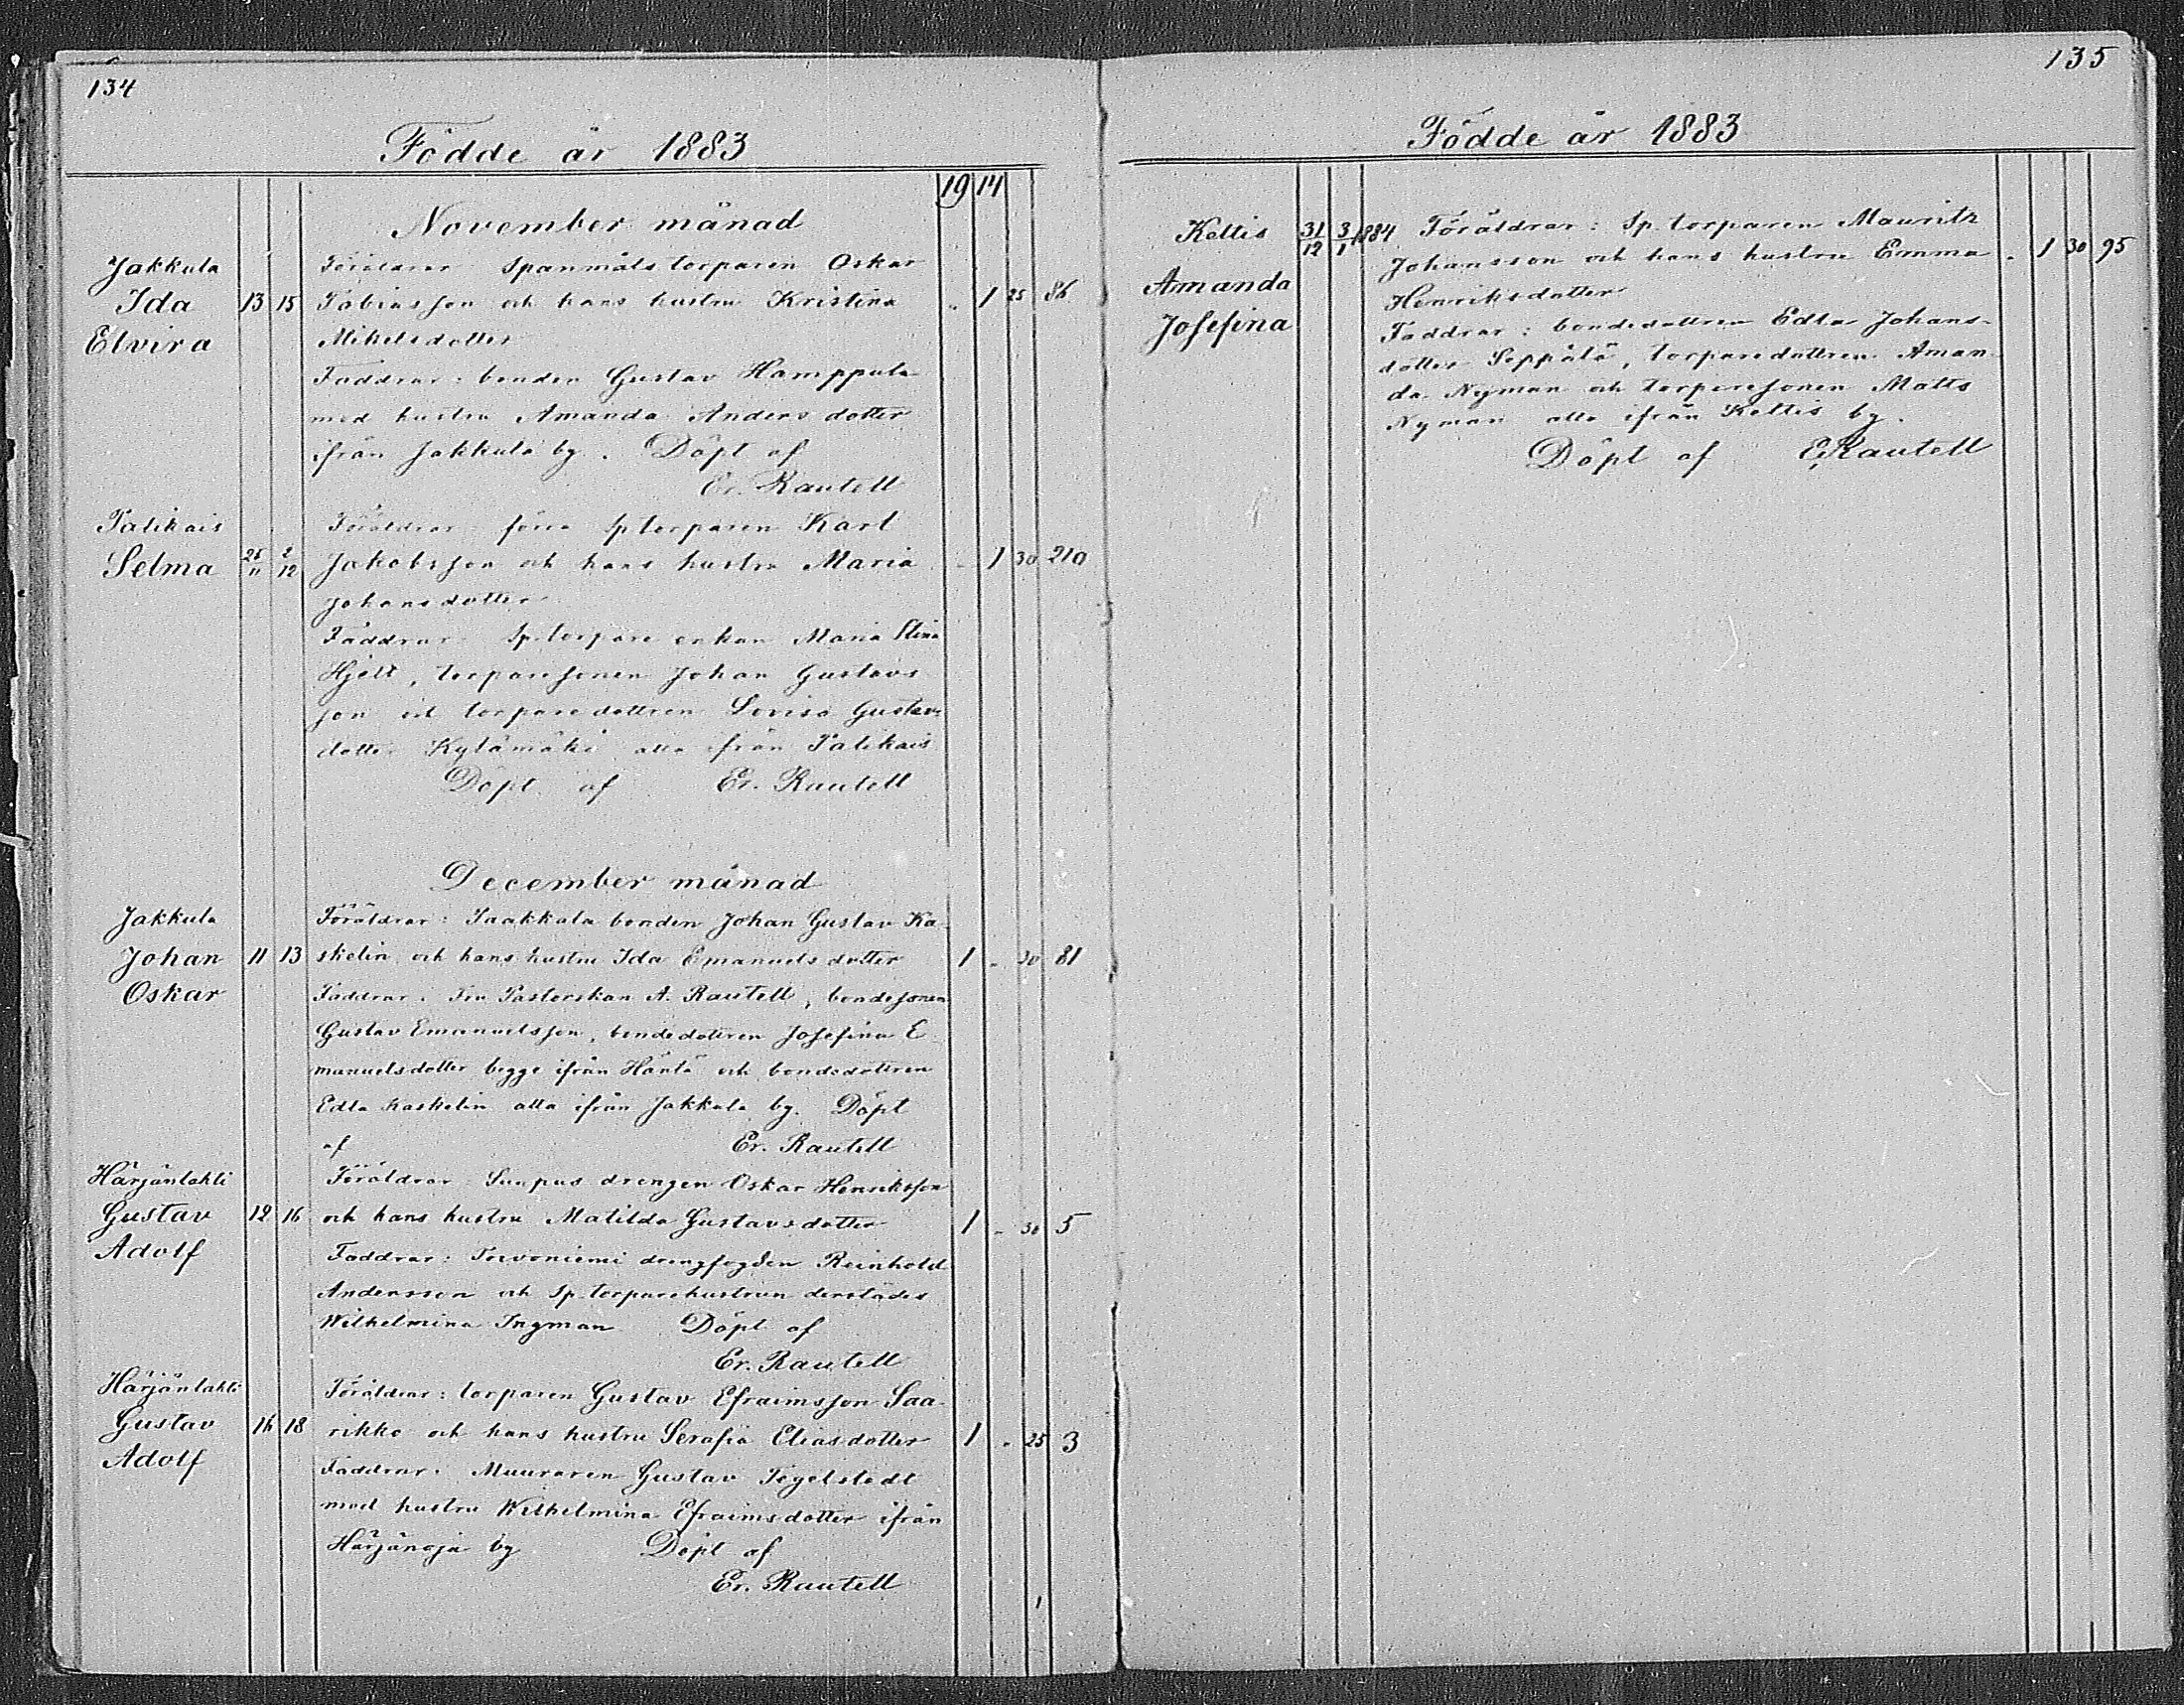 134
Födde år 1883
19 14
November månad
Jakkula Föräldrar Spanmåls torparen Oskar
Ida 13 15 Tobiasson och hans hustru Kristina " 1 25 86
Elvira Mikelsdotter
Faddrar: bonden Gustav Hamppula
med hustru Amanda Anders dotter
ifrån Jakkula by. Döpt af
Er. Rautell
Palikais Föräldrar förra sp torparen Karl
Selma 26/11 2/12 Jakobsson och hans hustru Maria - 1 30 210
Johansdotter
Faddrar Sp. torpare enkan Maria Stina
Hjelt, torparesonen Johan Gustavs
son och torparedottren Lovisa Gustavs
dotter Kylämäki alla ifrån Palikais
Döpt af Er. Rautell
December månad
Jakkula Föräldrar: Jaakkola bonden Johan Gustav Ka-
Johan 11 13 skelin och hans hustru Ida Emanuels dotter 1 - 30 81
Oskar Faddrar. Fru Pastorskan A. Rautell, bondesonen
Gustav Emanuelsson, bondedottren Josefina E
manuelsdotter begge ifrån Häntä och bondedottren
Edla Kaskelin alla ifrån Jakkula by. Döpt
af Er. Rautell
Härjänlahti Föräldrar: Sunpus drengen Oskar Henriksson
Gustav 12 16 och hans hustru Matilda Gustavsdotter 1 - 30 5
Adolf Faddrar: drengfogden Reinhold
Andersson och Sp. torparehustrun derstädes
Wilhelmina Ingman Döpt af
Er. Rautell
Härjänlahti Föräldrar: torparen Gustav Efraimsson Saa-
Gustav 16 18 rikko och hans hustru Serafia Eliasdotter 1 - 25 3
Adolf Faddrar. Muuraren Gustav Tegelstedt
med hustru Wilhelmina Efraimsdotter ifrån
Härjänoja by Döpt af
Er. Rautell
135
Födde år 1883
Keltis 31/12 3/1 1884 Föräldrar: Sp. torparen Mauritz
Johansson och hans hustru Emma - 1 30 95
Amanda Henriksdotter
Josefina Faddrar: bondedottren Edla Johans-
dotter Seppälä, torparedottren Aman-
da Nyman och torparesonen Matts
Nyman alla ifrån Keltis by.
Döpt af E. Rautell